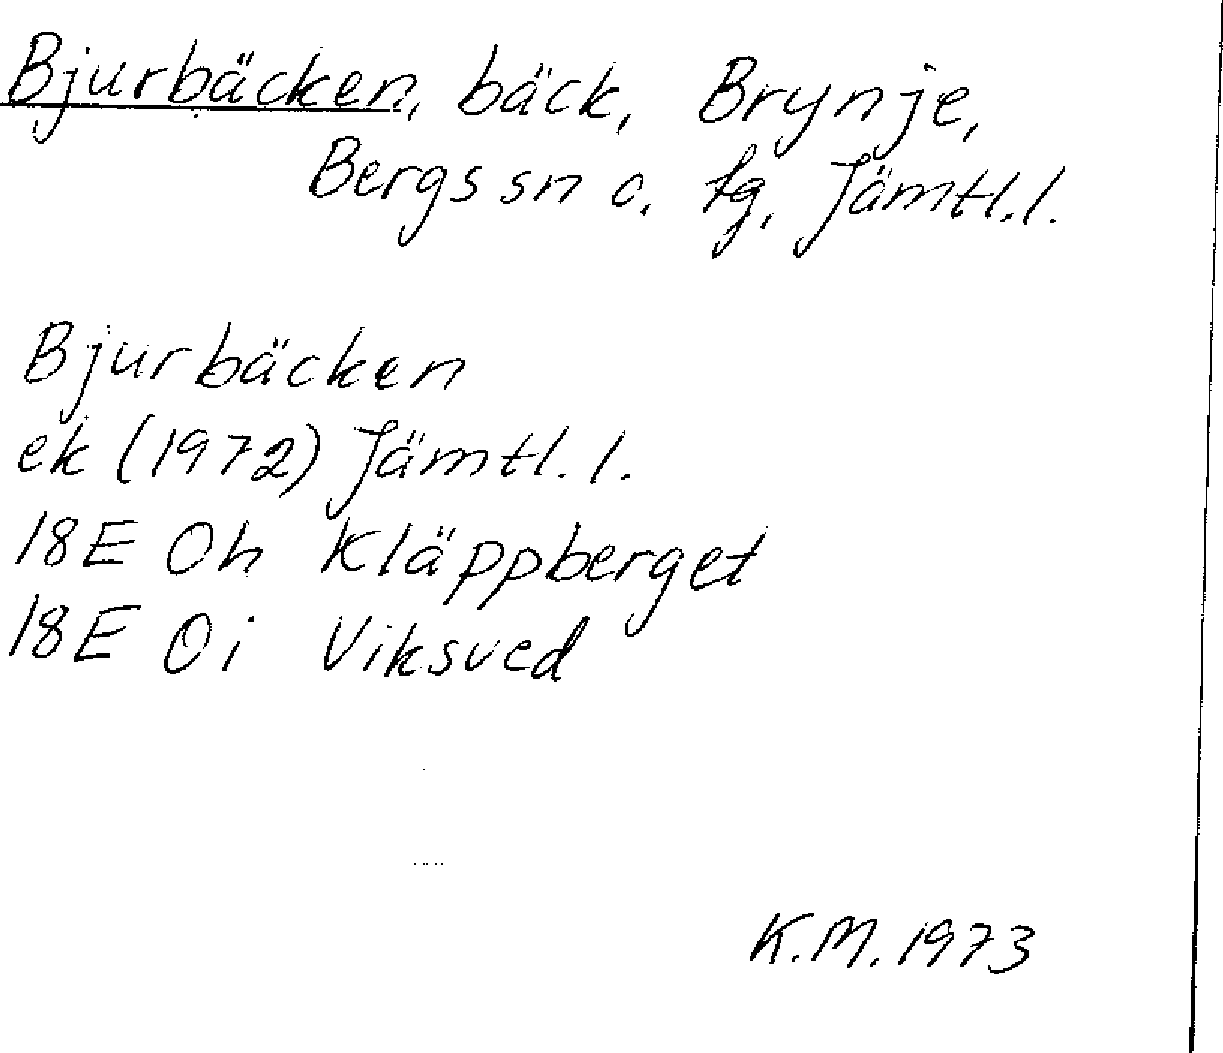 Bjurbäcken, bäck, Brynje,
Bergs sn o. tg, Jämtl.l.
Bjurbäcken
ek (1972) Jämtl.l.
18E 0h Kläppberget
18E 0i Viksved
K.M. 1973